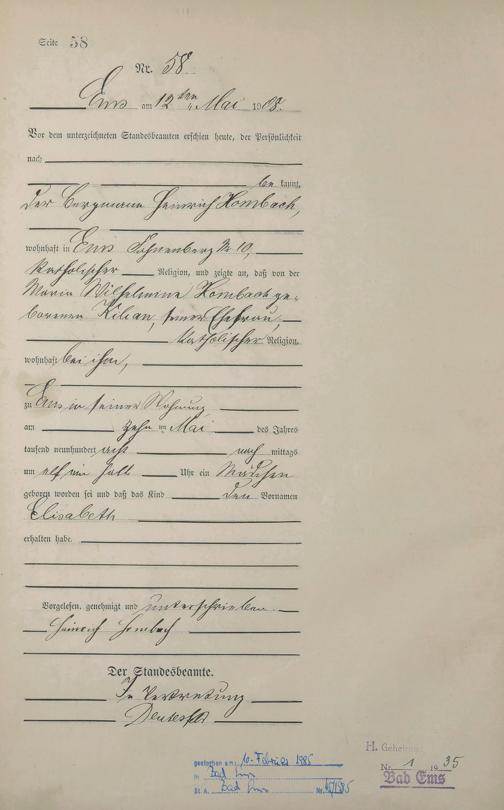 Seite 58
Nr. 58
Ems am 12ten Mai 1908.
Vor dem unterzeichneten Standesbeamten erschien heute, der Persönlichkeit
nach
be kannt,
der Bergmann Heinrich Hombach,
wohnhaft in Ems No 10,
katholischer Religion, und zeigte an, daß von der
Maria Wilhelmine Hombach ge-
borenen Kilian, seiner Ehefrau,
katholischer Religion,
wohnhaft bei ihm,
zu Ems in seiner Wohnung
am zehn ten Mai des Jahres
tausend neunhundert acht nach mittags
um elf ein halb Uhr ein Mädchen
geboren worden sei und daß das Kind den Vornamen
Elisabeth
erhalten habe.
Vorgelesen, genehmigt und unterschrieben.
Heinrich Hombach
Der Standesbeamte.
In Vertretung
gestorben am: 10. Februar 1985
in Bad Ems
St. A. Bad Ems Nr.
H. Geheiratet
Nr. 1 1935
Bad Ems